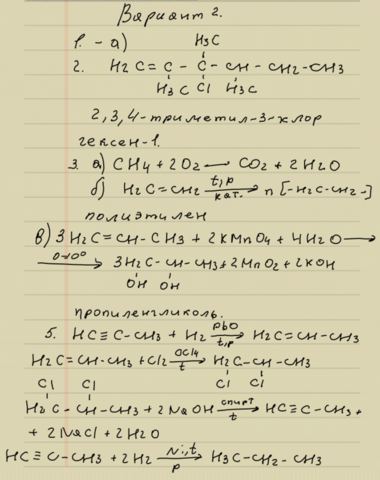 Вариант 2.
1. - а)
H3C
2. H2C = C - C - CH - CH2 - CH3
H3C Cl H3C
2,3,4-триметил-3-хлор
гексен-1.
3. а) CH4 + 2O2 → CO2 + 2H2O
б) H2C = CH2 t,p кат. → n [-H2C-CH2-]
полиэтилен
в) 3H2C = CH - CH3 + 2KMnO4 + 4H2O →
0-10° → 3H2C - CH - CH3 + 2MnO2 + 2KOH
OH OH
пропиленгликоль.
5. HC ≡ C - CH3 + H2 PbO t,p → H2C = CH - CH3
H2C = CH - CH3 + Cl2 CCl4 t → H2C - CH - CH3
Cl Cl Cl Cl
H2C - CH - CH3 + 2NaOH спирт t → HC ≡ C - CH3 +
+ 2NaCl + 2H2O
HC ≡ C - CH3 + 2H2 Ni,t p → H3C - CH2 - CH3